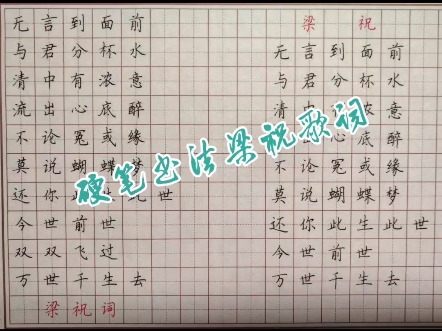 无言到面前
与君分杯水
清中有浓意
流出心底醉
不论冤或缘
莫说蝴蝶梦
还你此生此世
今世前世
双双飞过
万世千生去
梁祝词
梁祝
无言到面前
与君分杯水
清中有浓意
流出心底醉
不论冤或缘
莫说蝴蝶梦
还你此生此世
今世前世
双双飞过
万世千生去
硬笔书法梁祝歌词